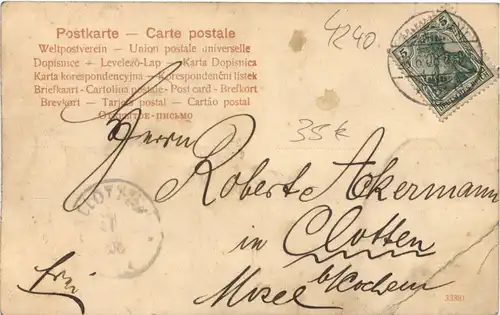 Postkarte — Carte postale
Weltpostverein — Union postale universelle
Dopisnice — Levelező-Lap — Karta Dopisnica
Karta korespondencyjna — Korespondenční lístek
Briefkaart - Cartolina postale - Post card - Brefkort
Brevkort — Tarjeta postal — Cartão postal
Открытое-письмо
4240
35k
Herrn
Robert Ackermann
in Clotten
b/Kochem
Mosel
Frei
CLOTTEN
33801